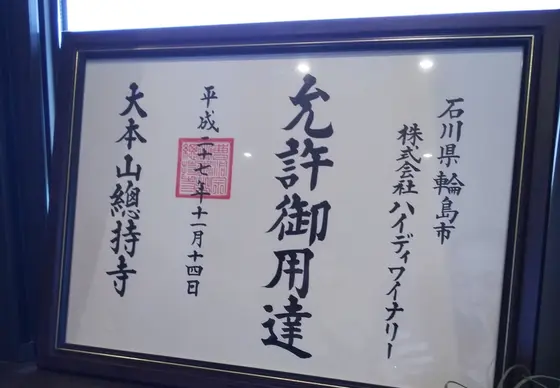 石川県輪島市
株式会社ハイディワイナリー
允許御用達
平成二十七年十一月十四日
大本山總持寺